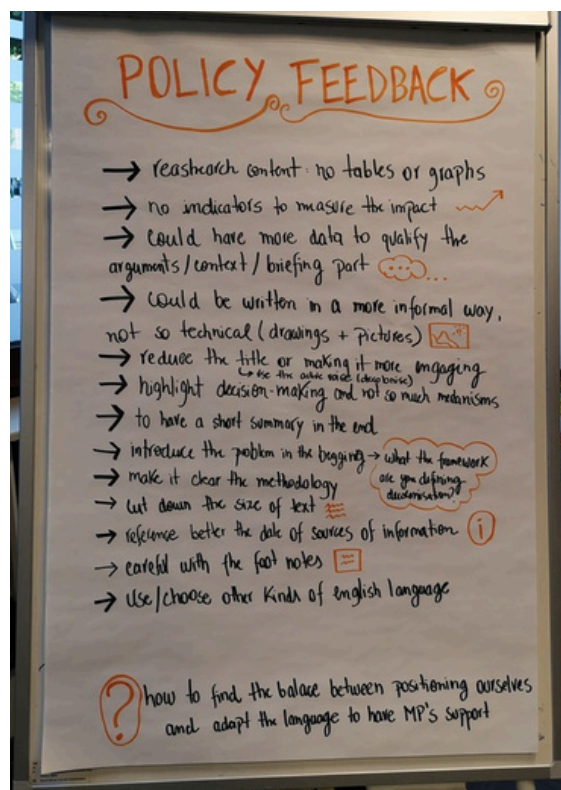 POLICY FEEDBACK
→ reashearch content: no tables or graphs
→ no indicators to measure the impact
→ could have more data to qualify the
arguments/context/briefing part
→ could be written in a more informal way,
not so technical (drawings + pictures)
→ reduce the title or making it more engaging
↳ use the active voice (decolonise)
→ highlight decision-making and not so much mechanisms
→ to have a short summary in the end
→ introduce the problem in the begging → what the framework
are you defining
decolonisation?
→ make it clear the methodology
→ cut down the size of text
→ reference better the date of sources of information i
→ careful with the foot notes
→ use/choose other kinds of english language
? how to find the balace between positioning ourselves
and adapt the language to have MP's support